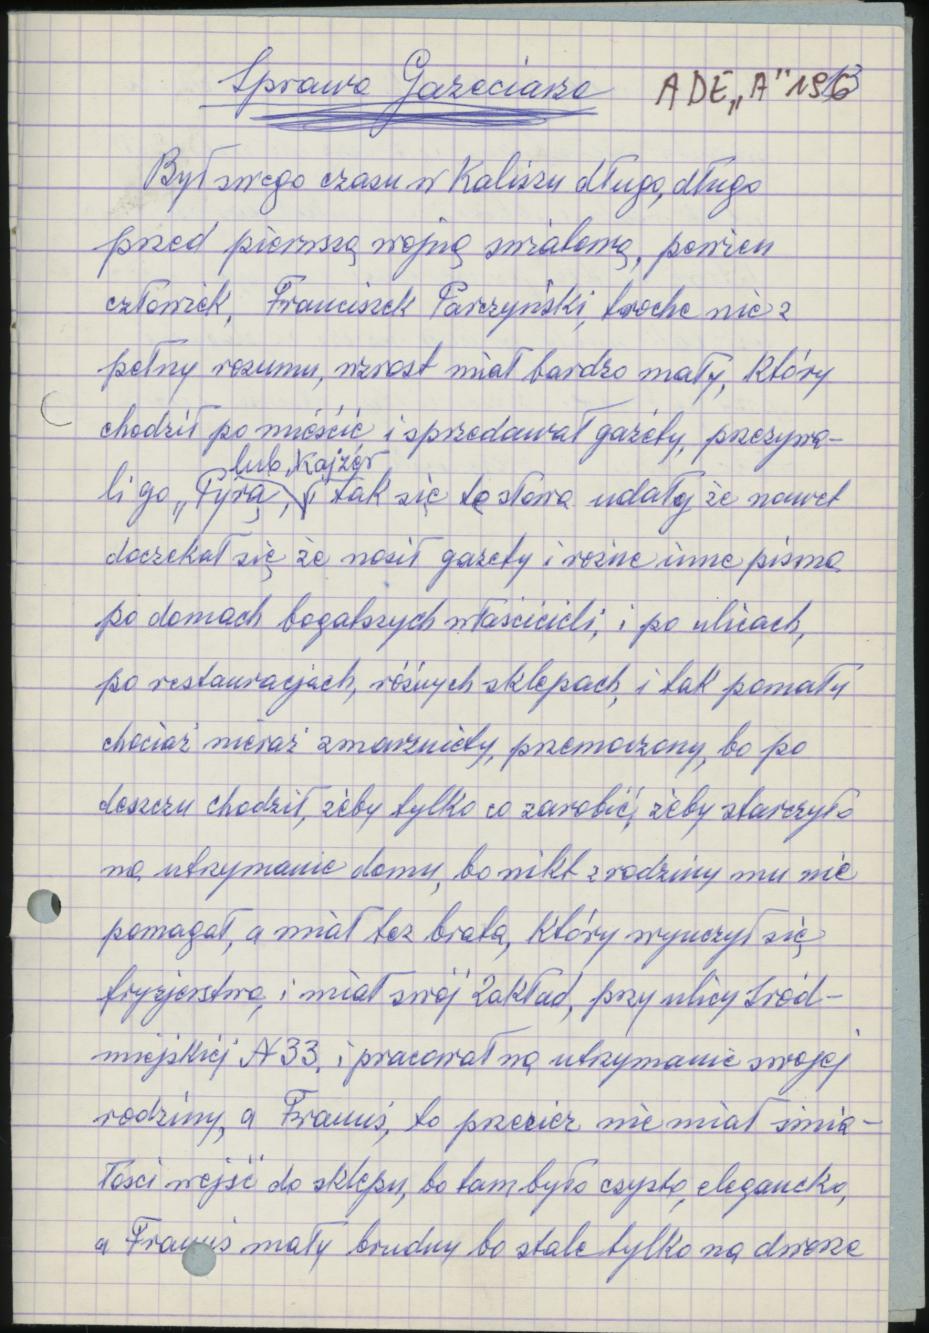 Sprawa Gazeciarza
ADE „A” 196
Był swego czasu w Kaliszu długo, długo
przed pierwszą wojną swiatową, pewien
człowiek, Franciszek Parczyński, troche nie z
pełny rozumu, wzrost miał bardzo mały, który
chodził po mieście i sprzedawał gazety, przezywa-
lub „Kajzer
li go „Pyra”, i tak sie te słowa udały że nawet
doczekał się że nosił gazety i rożne inne pisma
po domach bogatszych właścicieli, i po ulicach,
po restauracjach, różnych sklepach, i tak pomału
chociaż nieraz zmarznięty, przemoczony, bo po
deszczu chodził, żeby tylko co zarobić, żeby starczyło
na utrzymanie domu, bo nikt z rodziny mu nie
pomagał, a miał tez brata, który wyuczył się
fryzjerstwa, i miał swój Zakład, przy ulicy Śród-
miejskiej N 33, i pracował na utrzymanie swojej
rodziny, a Franuś, to przecież nie miał smia-
łości wejść do sklepu, bo tam było czysto, elegancko,
a Franuś mały brudny bo stale tylko na dworze